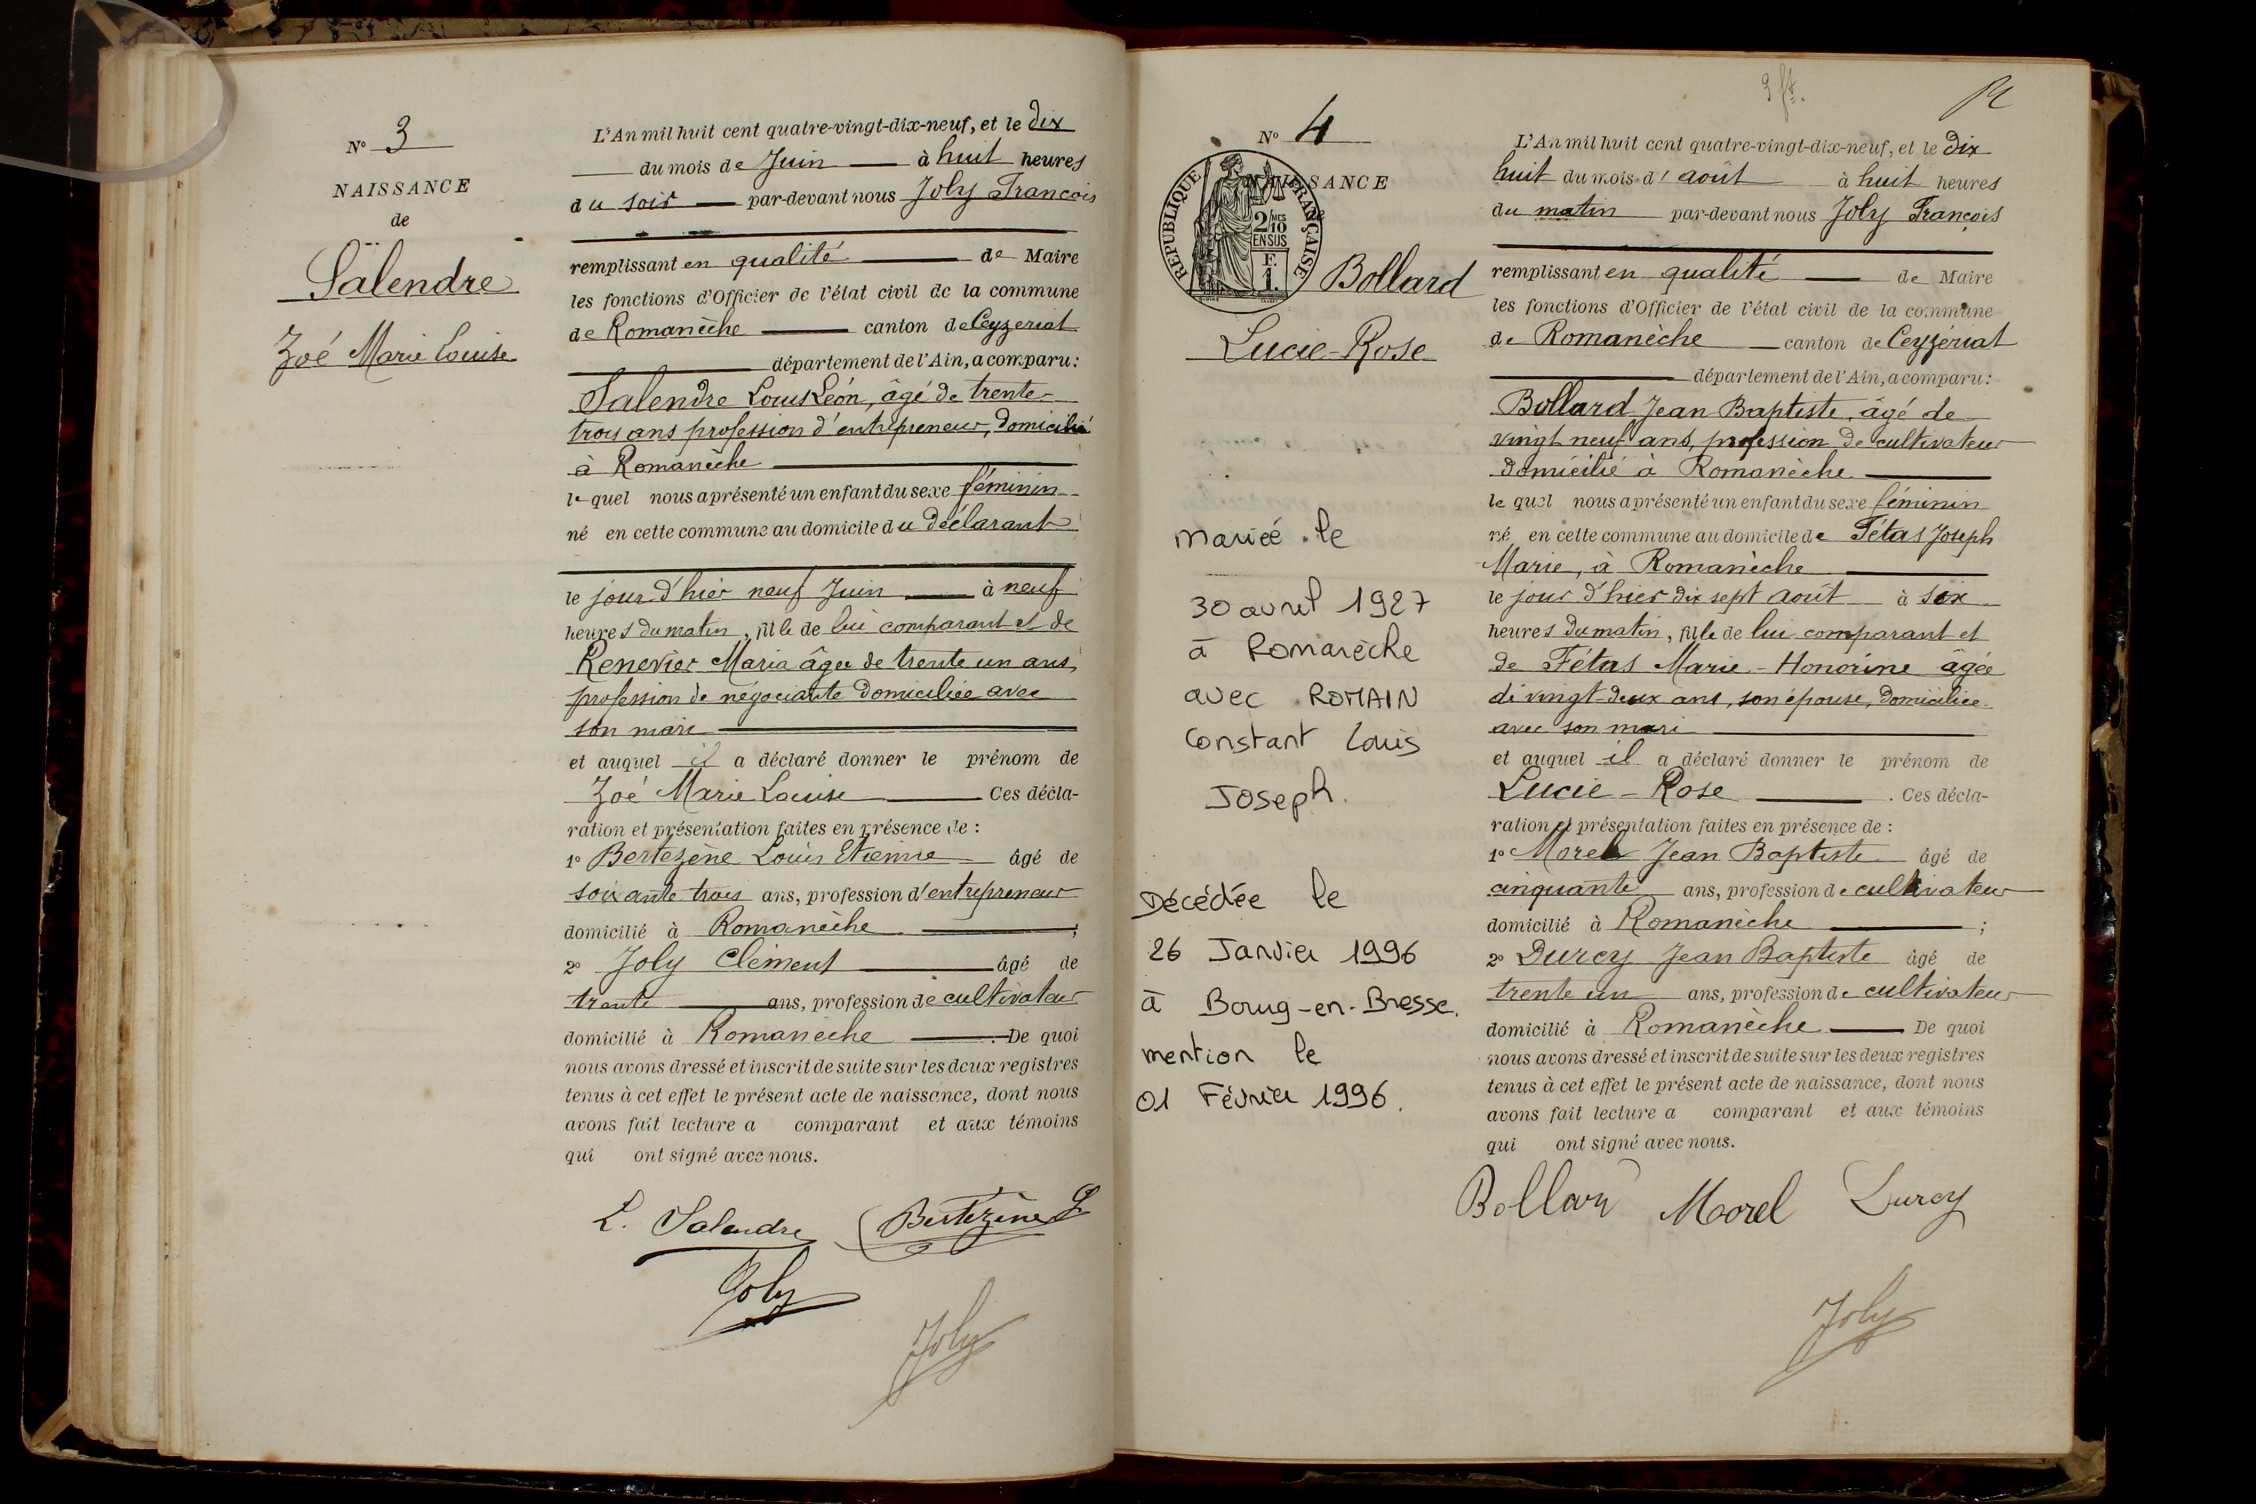 N° 3
NAISSANCE
de
Salendre
Zoé Marie Louise
L'An mil huit cent quatre-vingt-dix-neuf, et le dix
du mois de Juin à huit heures
du soir par-devant nous Joly François
remplissant en qualité de Maire
les fonctions d'Officier de l'état civil de la commune
de Romanèche canton de Ceyzeriat
département de l'Ain, a comparu :
Salendre Louis Léon, âgé de trente
trois ans profession d'entrepreneur, domicilié
à Romanèche
lequel nous a présenté un enfant du sexe féminin
né en cette commune au domicile du déclarant
le jour d'hier neuf Juin à neuf
heures du matin, fille de lui comparant et de
Renevier Maria âgée de trente un ans,
profession de négociante domiciliée avec
son mari
et auquel il a déclaré donner le prénom de
Zoé Marie Louise Ces décla-
ration et présentation faites en présence de :
1° Bertezène Louis Etienne âgé de
soixante trois ans, profession d'entrepreneur
domicilié à Romanèche ;
2° Joly Clément âgé de
trente ans, profession de cultivateur
domicilié à Romanèche . De quoi
nous avons dressé et inscrit de suite sur les deux registres
tenus à cet effet le présent acte de naissance, dont nous
avons fait lecture a comparant et aux témoins
qui ont signé avec nous.
L. Salendre Bertezène L
Joly
Joly
N° 4
NAISSANCE
REPUBLIQUE FRANÇAISE
2/10 MES
EN SUS
F.
1.
Bollard
Lucie-Rose
mariée le
30 avril 1927
à Romanèche
avec ROMAIN
Constant Louis
Joseph.
Décédée le
26 Janvier 1996
à Bourg-en-Bresse.
mention le
01 Février 1996.
L'An mil huit cent quatre-vingt-dix-neuf, et le dix
huit du mois d'août à huit heures
du matin par-devant nous Joly François
remplissant en qualité de Maire
les fonctions d'Officier de l'état civil de la commune
de Romanèche canton de Ceyzériat
département de l'Ain, a comparu :
Bollard Jean Baptiste, âgé de
vingt neuf ans, profession de cultivateur
domicilié à Romanèche
lequel nous a présenté un enfant du sexe féminin
né en cette commune au domicile de Fétas Joseph
Marie, à Romanèche
le jour d'hier dix sept août à six
heures du matin, fille de lui comparant et
de Fétas Marie-Honorine âgée
de vingt-deux ans, son épouse, domiciliée
avec son mari
et auquel il a déclaré donner le prénom de
Lucie-Rose . Ces décla-
ration et présentation faites en présence de :
1° Morel Jean Baptiste âgé de
cinquante ans, profession de cultivateur
domicilié à Romanèche ;
2° Durcy Jean Baptiste âgé de
trente un ans, profession de cultivateur
domicilié à Romanèche De quoi
nous avons dressé et inscrit de suite sur les deux registres
tenus à cet effet le présent acte de naissance, dont nous
avons fait lecture a comparant et aux témoins
qui ont signé avec nous.
Bollard Morel Durcy
Joly